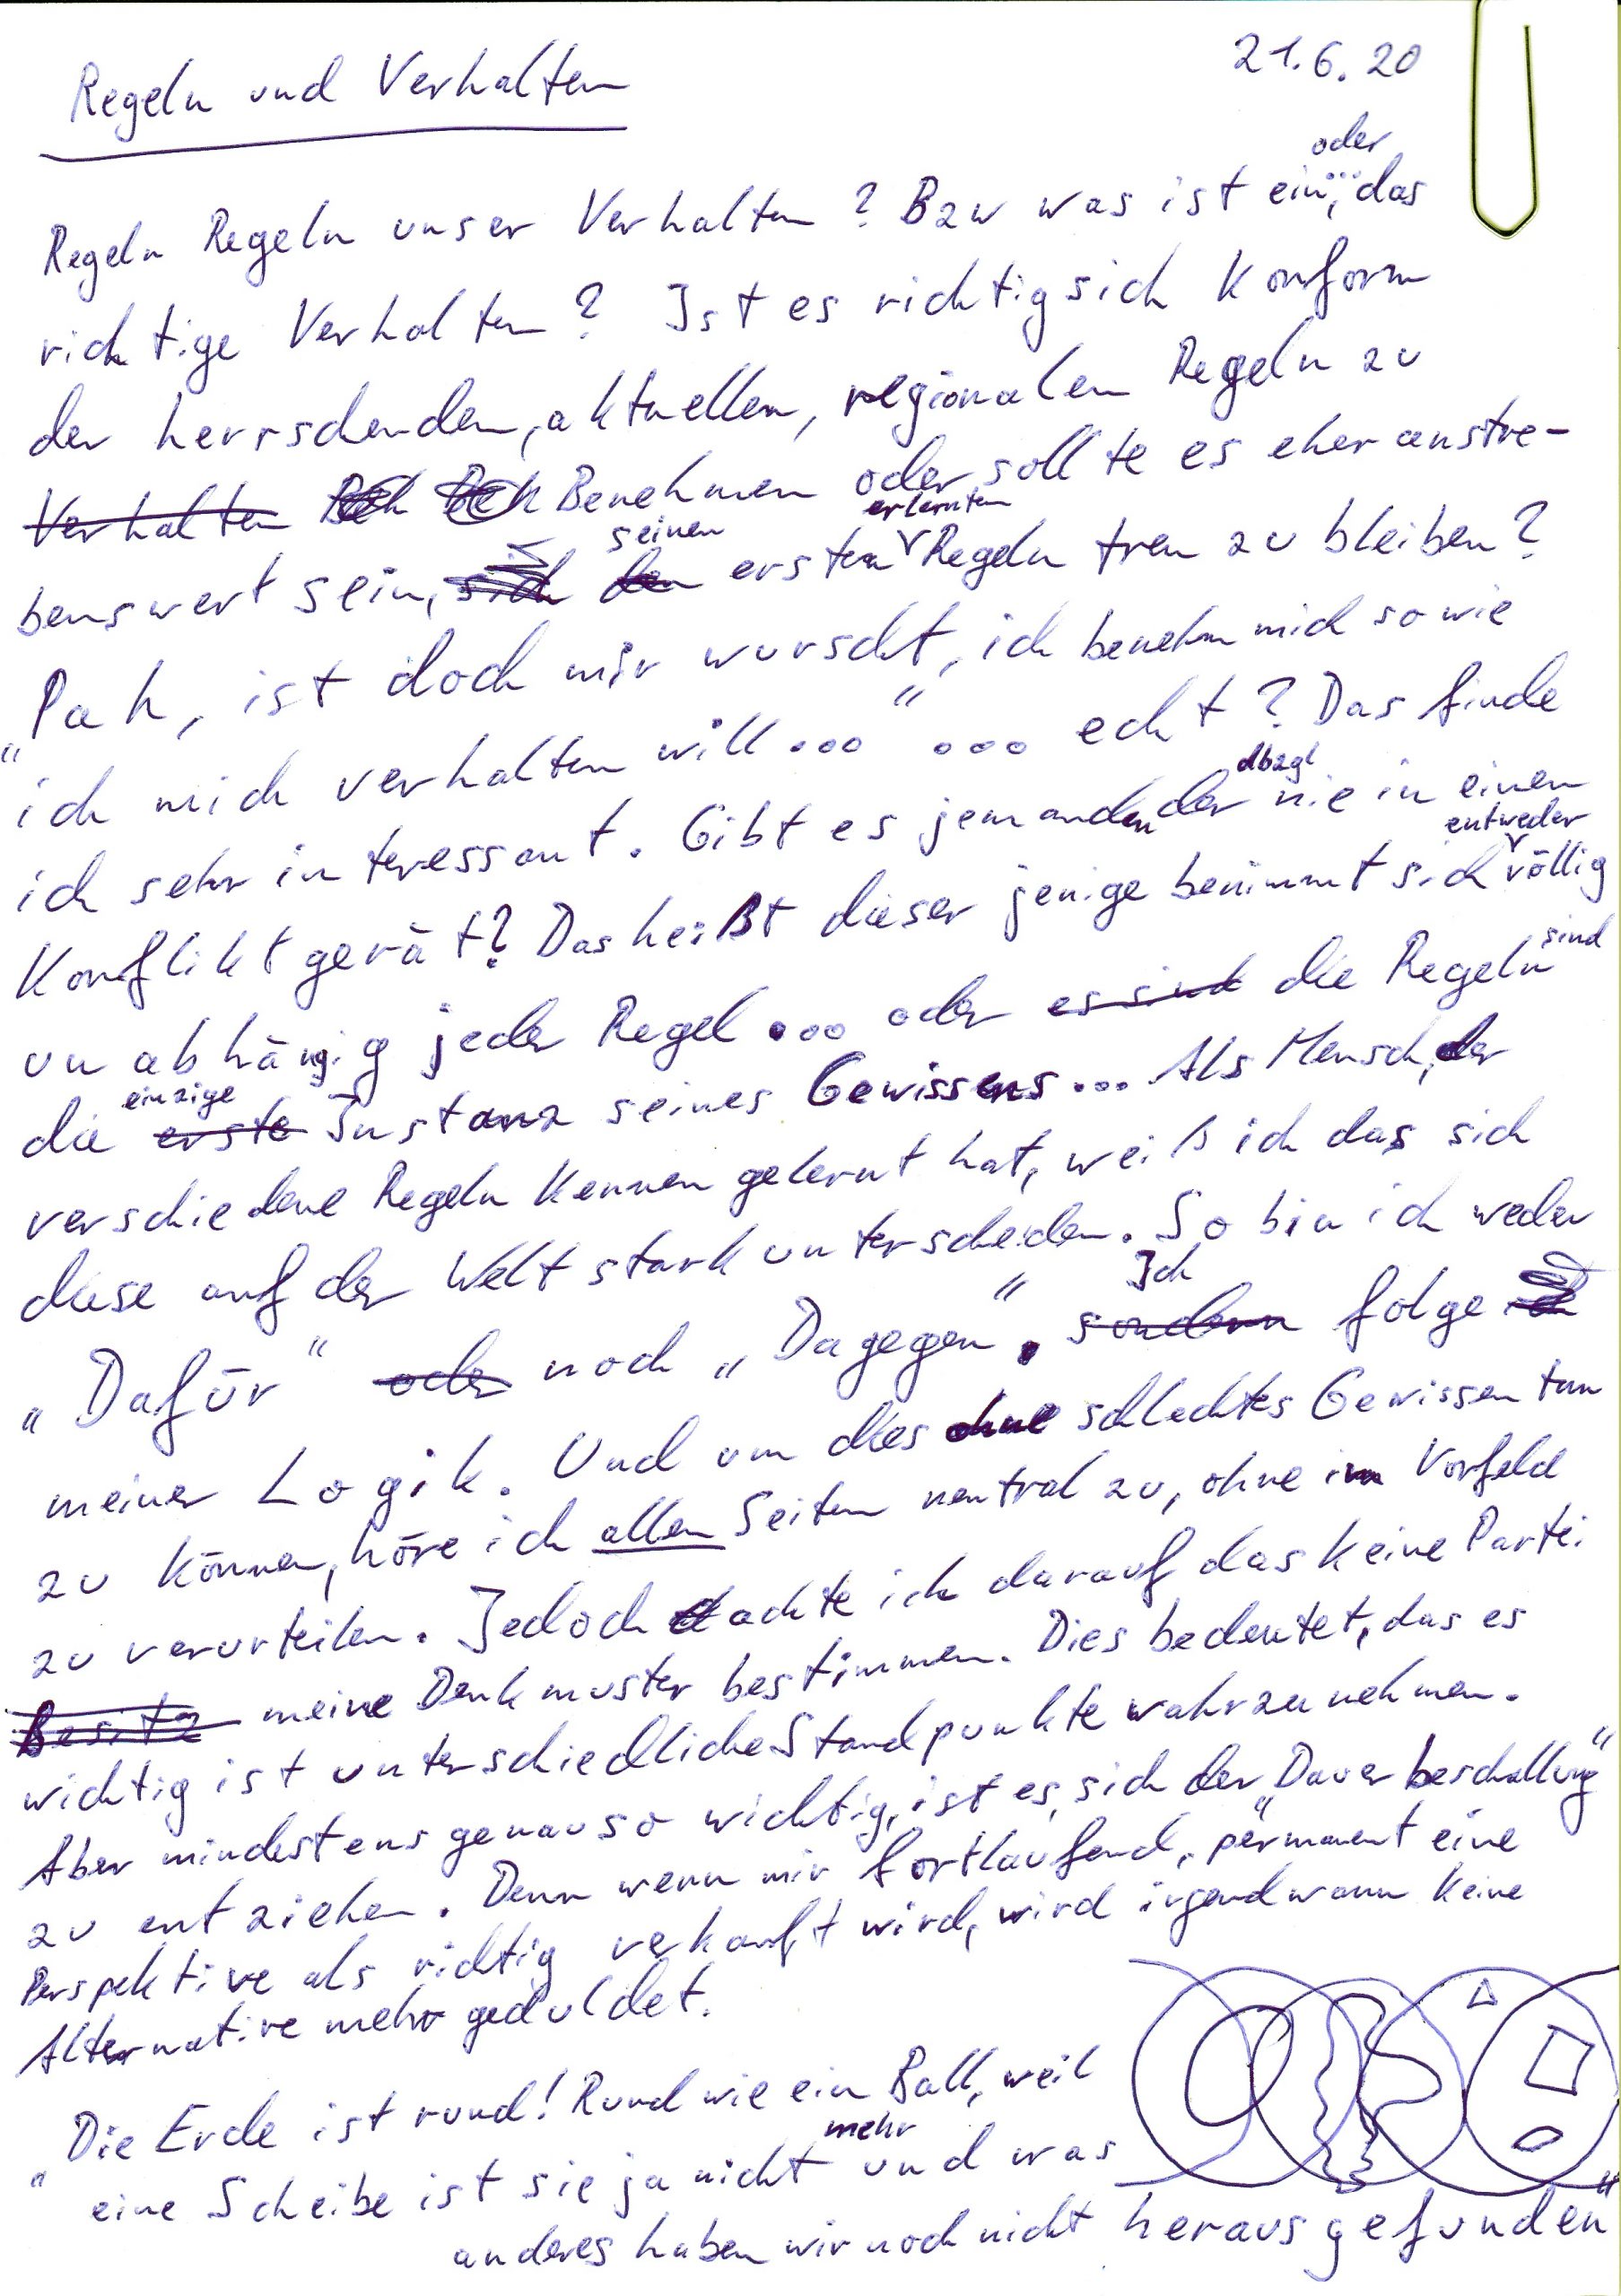 21.6.20
Regeln und Verhalten
oder
Regeln Regeln unser Verhalten? Bzw was ist ein..., das
richtige Verhalten? Ist es richtig sich Konform
der herrschenden, aktuellen, regionalen Regeln zu
Verhalten Benehmen oder sollte es eher anstre-
seinen erlernten
benswert sein, sich den ersten Regeln treu zu bleiben?
„Pah, ist doch mir wurscht, ich benehm mich so wie
ich mich verhalten will..." ... echt? Das finde
dbzgl
ich sehr interessant. Gibt es jemanden der nie in einen
entweder
Konflikt gerät? Das heißt dieser jenige benimmt sich völlig
sind
unabhängig jeder Regel... oder es sind die Regeln
einzige
die erste Instanz seines Gewissens... Als Mensch, der
verschiedene Regeln kennen gelernt hat, weiß ich das sich
diese auf der Welt stark unterscheiden. So bin ich weder
Ich
„Dafür" oder noch „Dagegen". sondern folge
meiner Logik. Und um dies ohne schlechtes Gewissen tun
zu können, höre ich allen Seiten neutral zu, ohne im Vorfeld
zu verurteilen. Jedoch achte ich darauf das keine Partei
Besitz meine Denkmuster bestimmen. Dies bedeutet, das es
wichtig ist unterschiedliche Standpunkte wahrzunehmen.
Aber mindestens genauso wichtig, ist es, sich der „Dauerbeschallung"
zu entziehen. Denn wenn mir fortlaufend, permanent eine
Perspektive als richtig verkauft wird, wird irgendwann keine
Alternative mehr geduldet.
„Die Erde ist rund! Rund wie ein Ball, weil
mehr
eine Scheibe ist sie ja nicht und was
anderes haben wir noch nicht herausgefunden"